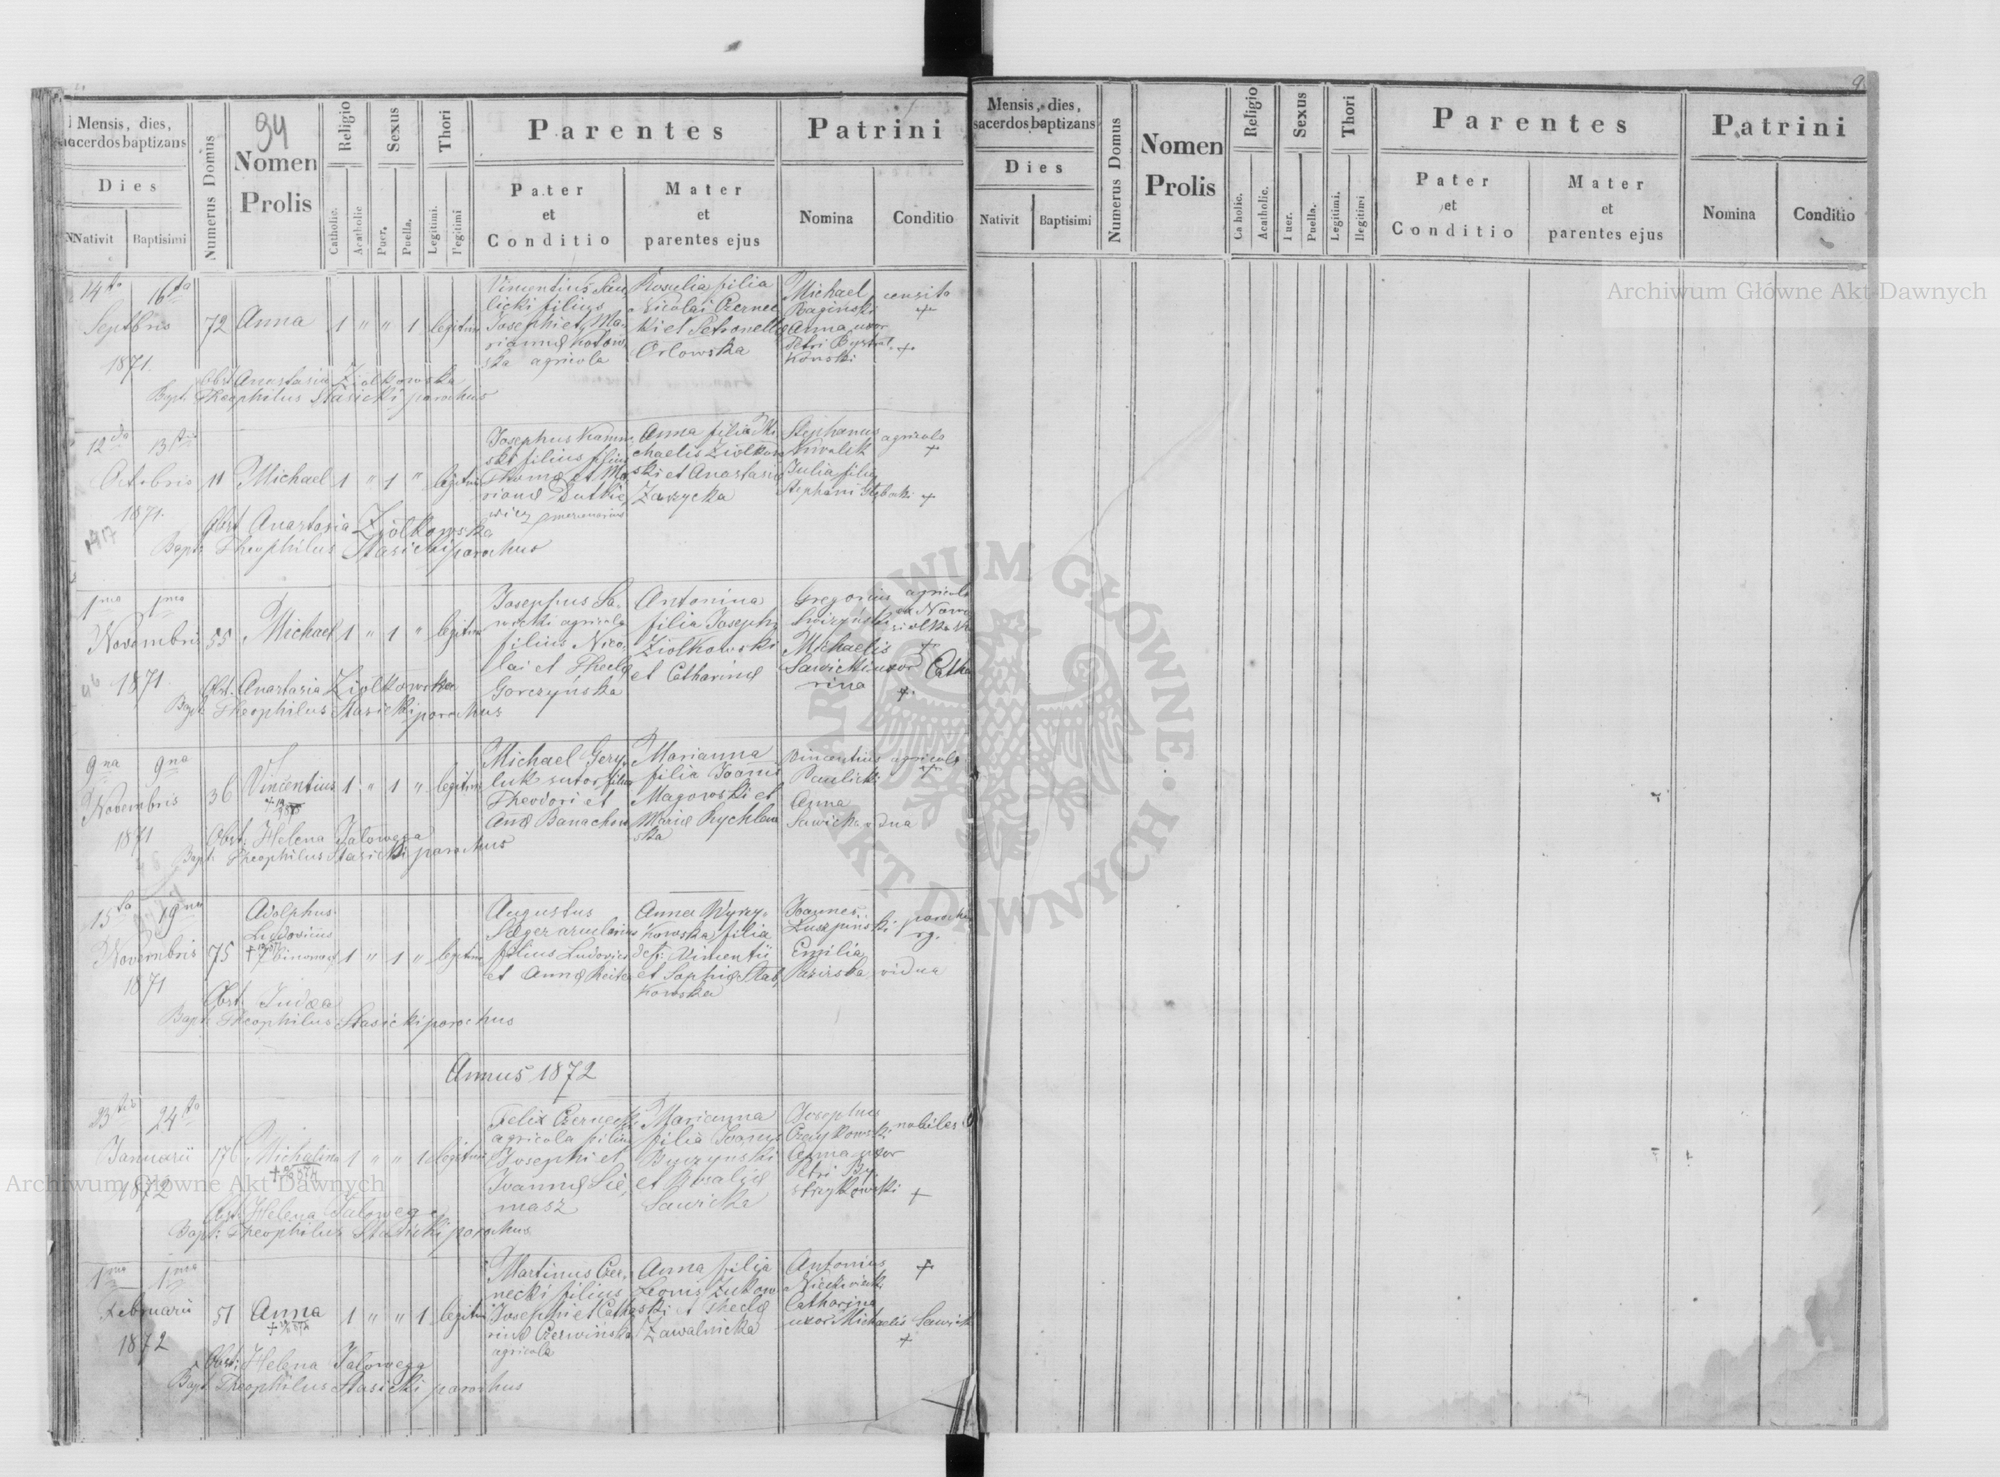 94
Mensis, dies,
sacerdos baptizans
Dies
Nativit
Baptisimi
Numerus Domus
Nomen
Prolis
Religio
Catholic.
Acatholic
Sexus
Puer.
Puella.
Thori
Legitimi.
Parentes
Pater
et
Conditio
Mater
et
parentes ejus
Patrini
Nomina
Conditio
14ta 16ta
Septbris 72 Anna 1 " " 1 legitimi
1871.
Vincentius
licki filius
Josephi et Ma-
rianna
ska agricola
Rosalia filia
Nicolai Czernec
ki et Petronella
Orlowska
Michael
Baginski
Anna uxor
Petri Bystrzy
kowski
Obst Anastasia Ziolkowska
Bapt. Theophilus Stasicki parochus
12da 13tia
Octobris 11 Michael 1 " 1 " legitimi
1871.
1917
Josephus
ski filius
Thoma et Ma
rianna
mercenarius
Anna filia Mi
chaelis Ziolkow
ski et Anastasia
Zarzycka
Stephanus
Kowalik
Julia filia
Stephani
agricola
Obst Anastasia Ziolkowska
Bapt: Theophilus Stasicki parochus
1ma 1ma
Novembris 55 Michael 1 " 1 " legitimi
1871
Josephus Sa-
wicki agricola
filius Nico-
lai et Thecla
Gorczyńska
Antonina
filia Josephi
Ziolkowski
et Catharina
Gregorius
Michaelis
Sawicki uxor Catha
rina
agricola
Obst: Anastasia Ziolkowska
Bapt Theophilus Stasicki parochus
9na 9na
Novembris 36 Vincentius 1 " 1 " legitimi
1871
Michael Gery
luk sutor filius
Theodori et
Anna Banachow
Marianna
filia Joannis
Magorowski et
Maria Rychlew
ska
Vincentius
Pawlicki
Anna
Sawicka
agricola
vidua
Obst: Helena Jalowega
Bapt: Theophilus Stasicki parochus
15ta 19na
Novembris 75 Adolphus
Ludovicus
binomen 1 " 1 " legitimi
1871
Augustus
filius Ludovici
et Anna Reiter
Anna Wyrzy-
kowska filia
def: Vincentii
et Sophia Stab
kowska
Joannes
Luszpiński
Emilia
vidua
Obst. Judaea
Bapt. Theophilus Stasicki parochus
Annus 1872
23tia 24ta
Januarii 176 Michalina 1 " " 1 legitimi
1872
Felix Czernecki
agricola filius
Josephi et
Joanna Sie-
masz
Marianna
filia Joannis
Byczynski
et Rosalia
Sawicka
Josephus
Czaykowski
Anna uxor
Petri By-
strzykowski
nobiles
Obst Helena Jalowega
Bapt: Theophilus Stasicki parochus
1ma 1ma
Februarii 51 Anna 1 " " 1 legitimi
1872
Martinus Czer-
necki filius
Josephi et Catha
rina Czerwińska
agricola
Anna filia
Leonis Zukow
ski et Thecla
Zawalnicka
Antonius
Catharina
uxor Michaelis Sawicki
Obst: Helena Jalowega
Bapt Theophilus Stasicki parochus
9
Mensis, dies,
sacerdos baptizans
Dies
Nativit
Baptisimi
Numerus Domus
Nomen
Prolis
Religio
Acatholic.
Sexus
Puella.
Thori
Legitimi.
Illegitimi
Parentes
Pater
et
Conditio
Mater
et
parentes ejus
Patrini
Nomina
Conditio
Archiwum Główne Akt Dawnych
Archiwum Główne Akt Dawnych
ARCHIWUM GŁÓWNE AKT DAWNYCH